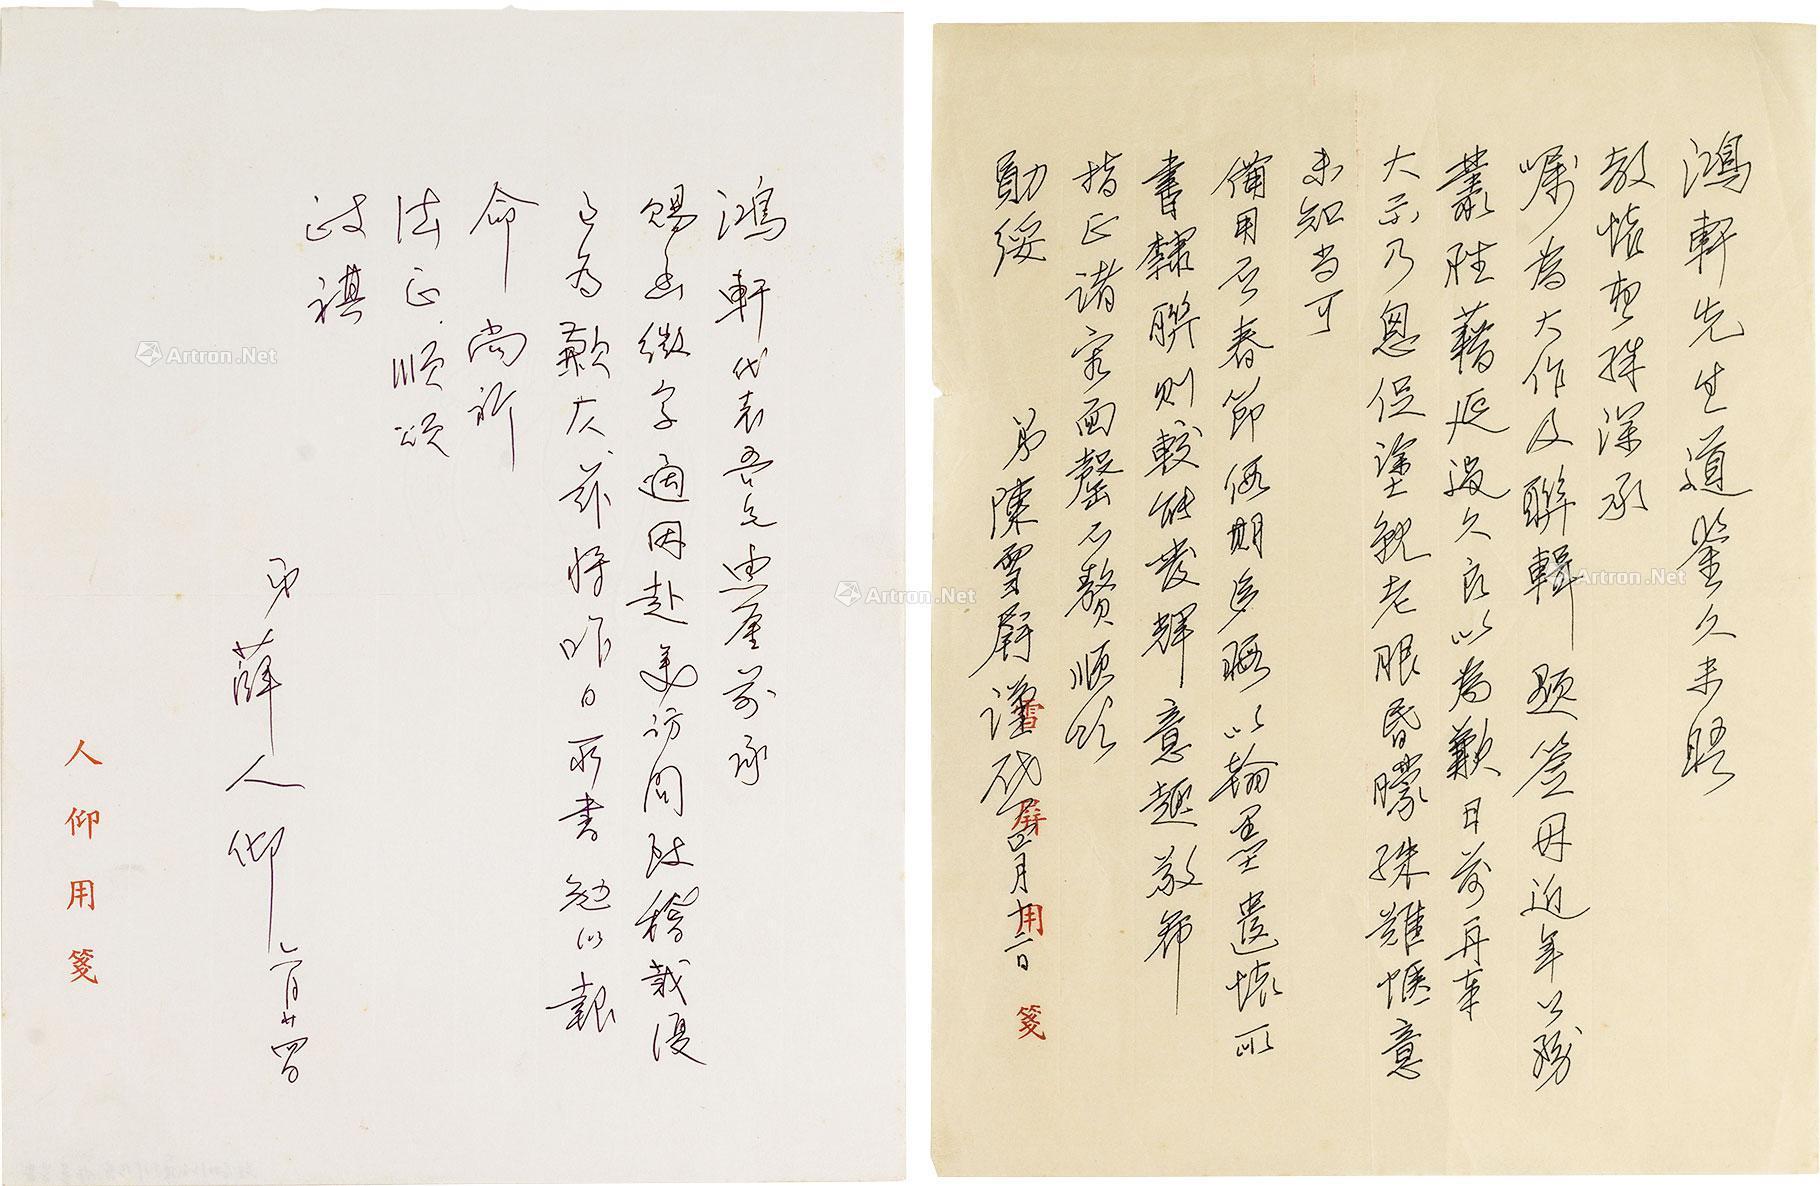 鴻軒先生道鑒久未晤
教懷想殊深承
囑為大作及聯輯題簽因近年公務
叢脞藉延過久良以為歉日前再奉
大示乃恩促塗就老眼昏矇殊難愜意
未知尚可
備用否春節假期多晒以翰墨遣懷所
書隸聯則較能發輝意趣敬希
指正諸容面罄不贅順頌
勛綏
弟陳雪屏謹啟 四月十二日
雪屏用箋
鴻軒代表吾兄惠鑒前承
賜函徵字適因赴美訪問致稽裁復
至為歉仄茲將昨日所書勉以報
命尚祈
法正順頌
政祺
弟薛人仰 六月廿四日
人仰用箋
Artron.Net
Artron.Net
Artron.Net